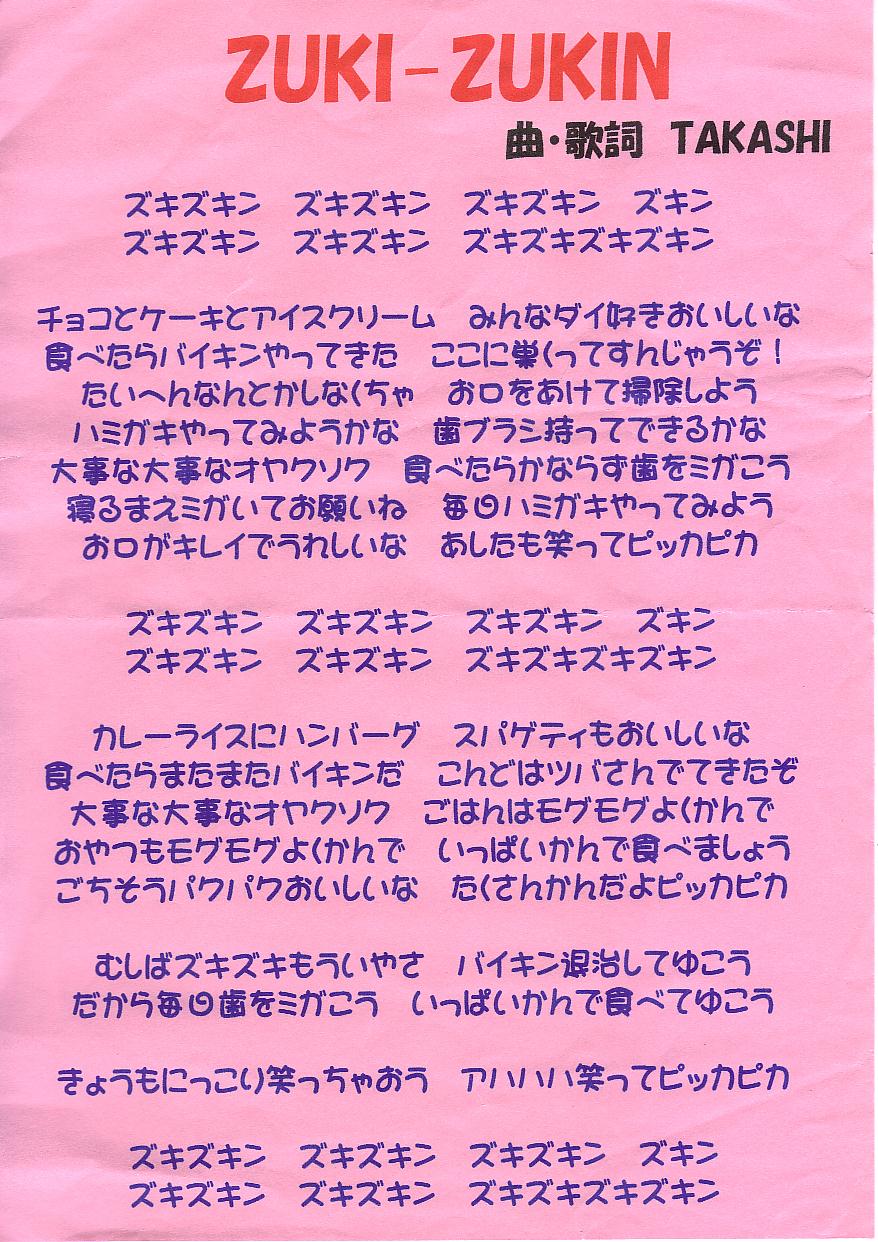 ZUKI－ZUKIN
曲・歌詞　TAKASHI
ズキズキン　ズキズキン　ズキズキン　ズキン
ズキズキン　ズキズキン　ズキズキズキズキン
チョコとケーキとアイスクリーム　みんなダイ好きおいしいな
食べたらバイキンやってきた　ここに巣くってすんじゃうぞ！
たいへんなんとかしなくちゃ　お口をあけて掃除しよう
ハミガキやってみようかな　歯ブラシ持ってできるかな
大事な大事なオヤクソク　食べたらかならず歯をミガこう
寝るまえミガいてお願いね　毎日ハミガキやってみよう
お口がキレイでうれしいな　あしたも笑ってピッカピカ
ズキズキン　ズキズキン　ズキズキン　ズキン
ズキズキン　ズキズキン　ズキズキズキズキン
カレーライスにハンバーグ　スパゲティもおいしいな
食べたらまたまたバイキンだ　こんどはツバさんでてきたぞ
大事な大事なオヤクソク　ごはんはモグモグよくかんで
おやつもモグモグよくかんで　いっぱいかんで食べましょう
ごちそうパクパクおいしいな　たくさんかんだよピッカピカ
むしばズキズキもういやさ　バイキン退治してゆこう
だから毎日歯をミガこう　いっぱいかんで食べてゆこう
きょうもにっこり笑っちゃおう　アハハハ笑ってピッカピカ
ズキズキン　ズキズキン　ズキズキン　ズキン
ズキズキン　ズキズキン　ズキズキズキズキン